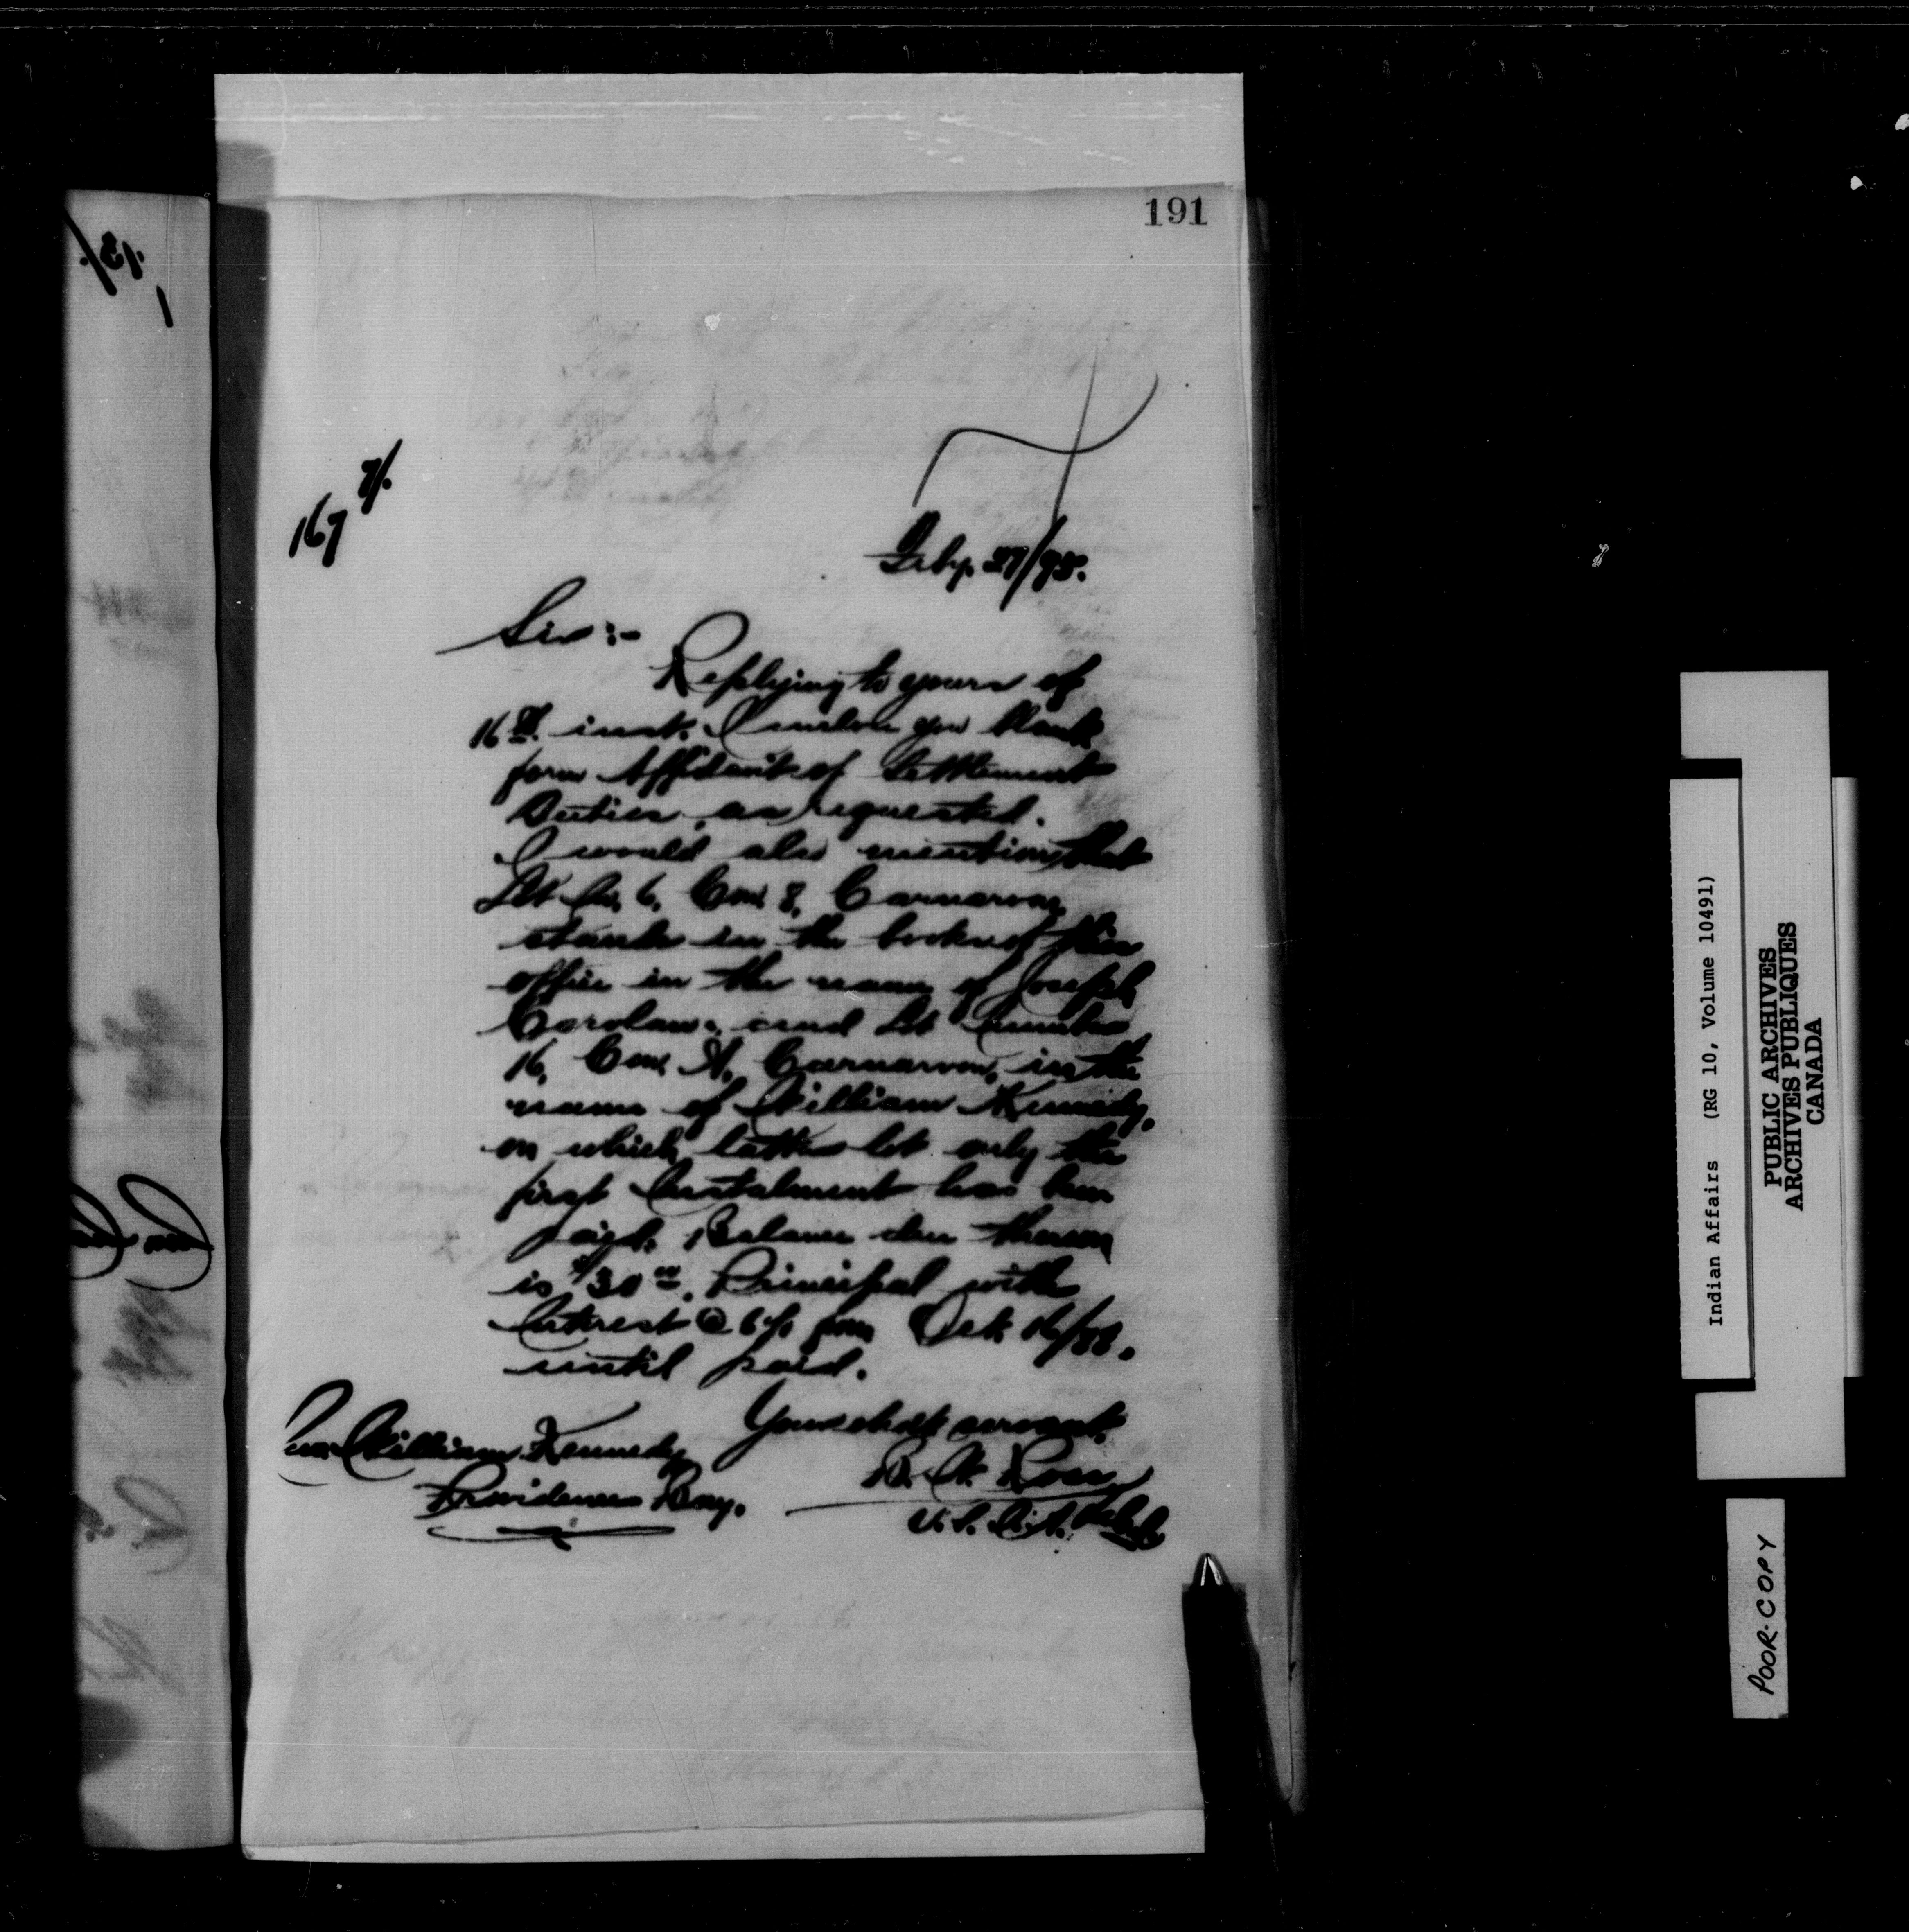 191
167 7/.
Feby. 27/95.
Sir :-
Replying to yours of
16th. inst. I enclose you blank
form Affidavit of Settlement
Duties, as requested.
I would also mention that
Lot No. 6, Con 8, Carnarvon,
stands in the books of this
office in the name of Joseph
Carolan, and Lot Number
16, Con A, Carnarvon, in the
name of William Kennedy,
on which latter lot only the
first Instalment has been
paid. Balance due thereon
is $30.00 Principal with
Interest @ 6% from Oct 16/88.
until paid.
Your obdt servant,
William Kennedy
B. W. Ross
Providence Bay.
Indian Affairs (RG 10, Volume 10491)
PUBLIC ARCHIVES
ARCHIVES PUBLIQUES
CANADA
POOR-COPY